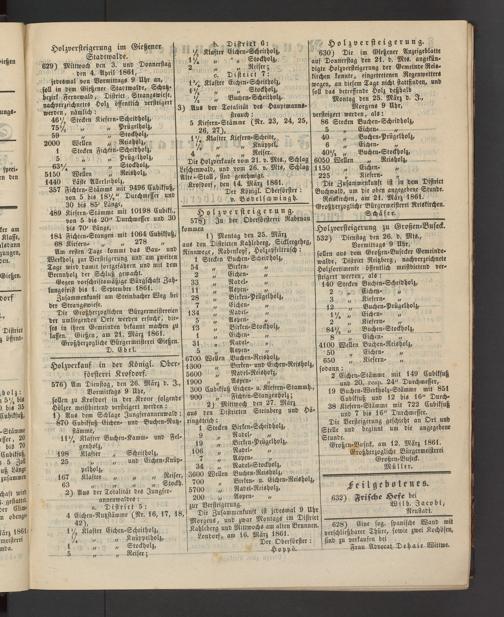 Holzversteigerung im Gießener
Stadtwalde.
629) Mittwoch den 3. und Donnerstag
den 4. April 1861,
jedesmal von Vormittags 9 Uhr an,
soll in dem Gießener Stadtwalde, Schutz-
bezirk Fernewald, District, Strangswiese,
nachverzeichnetes Holz öffentlich versteigert
werden, nämlich:
46½ Stecken Eichen-Scheidholz,
75¼ " " Prügelholz,
59 " " Stockholz,
2000 Wellen " Reisholz,
1 Stecken Fichten-Scheidholz,
5 " " Prügelholz,
63¼ " " Stockholz,
5150 Wellen " Reisholz,
1440 Läste Allerleiholz,
357 Fichten-Stämme mit 9496 Cubikfuß,
von 5 bis Durchmesser und
30 bis 85' Länge,
489 Kiefern-Stämme mit 10198 Cubikf.,
von 5 bis 20" Durchmesser und 30
bis 70' Länge,
184 Fichten-Stangen mit 1064 Cubikfuß,
68 Kiefern- " " 278 "
Am ersten Tage kommt das Bau- und
Werkholz zur Versteigerung und am zweiten
Tage wird damit fortgefahren und mit dem
Brennholz der Schluß gemacht.
Gegen vorschriftsmäßige Bürgschaft Zah-
lungsfrist bis 1. September 1861.
Zusammenkunft am Steinbacher Weg bei
der Strangswiese.
Die Großherzoglichen Bürgermeistereien
der umliegenden Orte werden ersucht, die-
ses in ihren Gemeinden bekannt machen zu
lassen. Gießen, am 21. März 1861.
Großherzogliche Bürgermeisterei Gießen.
D. Ebel.
Holzverkauf in der Königl. Ober-
försterei Krofdorf.
576) Am Dienstag, den 26. März d. J.,
Vormittags 9 Uhr,
sollen zu Krofdorf in der Krone folgende
Hölzer meistbietend versteigert werden:
1) Aus dem Schlage Jungfernannewald:
870 Cubikfuß Eichen- und Buchen-Nutz-
stämme,
11½ Klafter Buchen-Kamm- und Fel-
genholz,
198 Klafter " Scheitholz,
25 " " und Eichen-Knüp-
pelholz,
167 Klafter " " Reiser,
63 " " " Stockh.
2) Aus der Totalität des Jungfer-
nannewaldes:
a. District 5:
4 Eichen-Nutzstämme (Nr. 16, 17, 18,
42),
1½ Klafter Eichen-Scheitholz,
" " Knüppelholz,
1 " " Stockholz,
1 " " Reiser;
b. District 6:
Klafter Eichen-Scheitholz,
1¼ " " Stockholz,
2 " " Reiser;
c. District 7:
Klafter Eichen-Scheitholz,
" " Stockholz,
" Buchen-Scheitholz.
3) Aus der Totalität des Hauptmanns-
strauch:
5 Kiefern-Stämme (Nr. 23, 24, 25,
26, 27),
1½ Klafter Kiefern-Scheite,
" " Knüppel,
4 " " Reiser.
Die Holzverkaufe vom 21. v. Mts., Schlag
Eschenwald, und vom 26. v. Mts., Schlag
Alte-Stall, sind genehmigt.
Krofdorf, den 14. März 1861.
Der Königl. Oberförster:
v. Bodelschwingh.
Holzversteigerung.
578) In der Oberförsterei Rabenau
kommen
1) Montag den 25. März
aus den Districten Kahlsberg,
Holzstraucher:
1 Stecken Buchen-Scheidholz,
58 " Birken- "
2 " Eichen- "
33 " Nadel- "
11 " Aspen- "
28 " Birken-Prügelholz,
7 " Eichen- "
134 " Nadel- "
5 " Aspen- "
13 " Birken-Stockholz,
1 " Eichen- "
31 " Nadel- "
5 " Aspen- "
6700 Wellen Buchen-Reisholz,
1300 " Birken- und Eichen-Reisholz,
5600 " Nadel-Reisholz,
1900 " Aspen- "
300 Cubikfuß Eichen- u. Kiefern-Stammh.,
900 " Fichten-Stangenholz;
2) Mittwoch den 27. März
aus den Districten Steinberg und Hä-
ringerteich:
4 Stecken Birken-Scheidholz,
9 " Nadel- "
19 " Birken-Prügelholz,
106 " Nadel- "
7 " Aspen- "
4 " Birken-Stockholz,
34 " Nadel-Stockholz,
3600 Wellen Buchen-Reisholz,
700 " Birken-Reisholz,
5700 " Nadel-Reisholz,
200 " Aspen- "
zur Versteigerung.
Die Zusammenkunft ist jedesmal 9 Uhr
Morgens, und zwar Montags im District
Kahlsberg und Mittwochs am alten Brunnen.
Londorf, am 16. März 1861.
Der Oberförster:
Hoppe.
Holzversteigerung.
630) Die im Gießener Anzeigeblatte
auf Donnerstag den 21. v. Mts. angekün-
digte Holzversteigerung der Gemeinde Reis-
kirchen konnte, eingetretenen Regenwetters
wegen, an diesem Tage nicht stattfinden, und
soll das betreffende Holz deßhalb
Montag den 25. März d. J.,
Morgens 9 Uhr,
versteigert werden, als:
86 Stecken Buchen-Scheidholz,
5 " Eichen- "
40 " Buchen-Prügelholz,
6 " Eichen- "
40½ " Buchen-Stockholz,
6050 Wellen Reisholz,
1150 " Eichen- "
225 " Kiefern- "
Die Zusammenkunft ist in dem District
Buchwald, um die oben angegebene Stunde.
Reiskirchen, am 21. März 1861.
Großherzogliche Bürgermeisterei Reiskirchen.
Schäfer.
Holzversteigerung zu Großen-Buseck.
532) Dienstag den 26. d. Mts.,
Vormittags 9 Uhr,
sollen aus dem Großen-Busecker Gemeinde-
walde, District Reisberg, nachverzeichnete
Holzsortimente öffentlich meistbietend ver-
steigert werden, als:
140 Stecken Buchen-Scheidholz,
2 " Eichen- "
3 " Kiefern- "
12 " Buchen-Prügelholz,
1 " Eichen- "
2 " Kiefern- "
84½ " Buchen-Stockholz,
8 " Eichen- "
4100 Wellen Buchen-Reisholz,
50 " Eichen- "
650 " Kiefern- "
sodann:
2 Eichen-Stämme mit 149 Cubikfuß
und 20. resp. 24" Durchmesser,
19 Buchen-Werkholz-Stämme mit 851
Cubikfuß und 12 bis 16" Durch-
38 Kiefern-Stämme mit 722 Cubikfuß
und 7 bis 16" Durchmesser.
Die Versteigerung geschieht an Ort und
Stelle und beginnt um die angegebene
Stunde.
Großen-Buseck, am 12. März 1861.
Großherzogliche Bürgermeisterei
Großen-Buseck.
Müller.
Feilgebotenes.
632) Frische Hefe bei
Wilh. Jacobi,
Neustadt.
628) Eine sog. spanische Wand mit
verschließbarer Thüre, sowie zwei Kochöfen,
sind zu verkaufen bei
Frau Advocat Dehaie Wittwe.